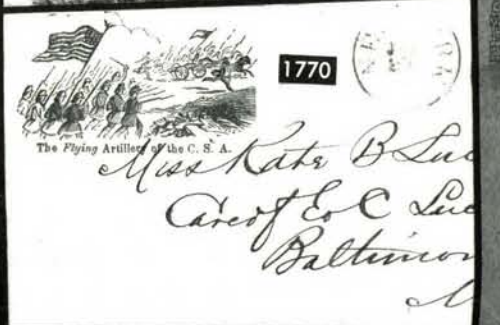 1770
The Flying Artillery of the C. S. A.
Miss Kate B Luc
Care of E C Luc
Baltimor
M